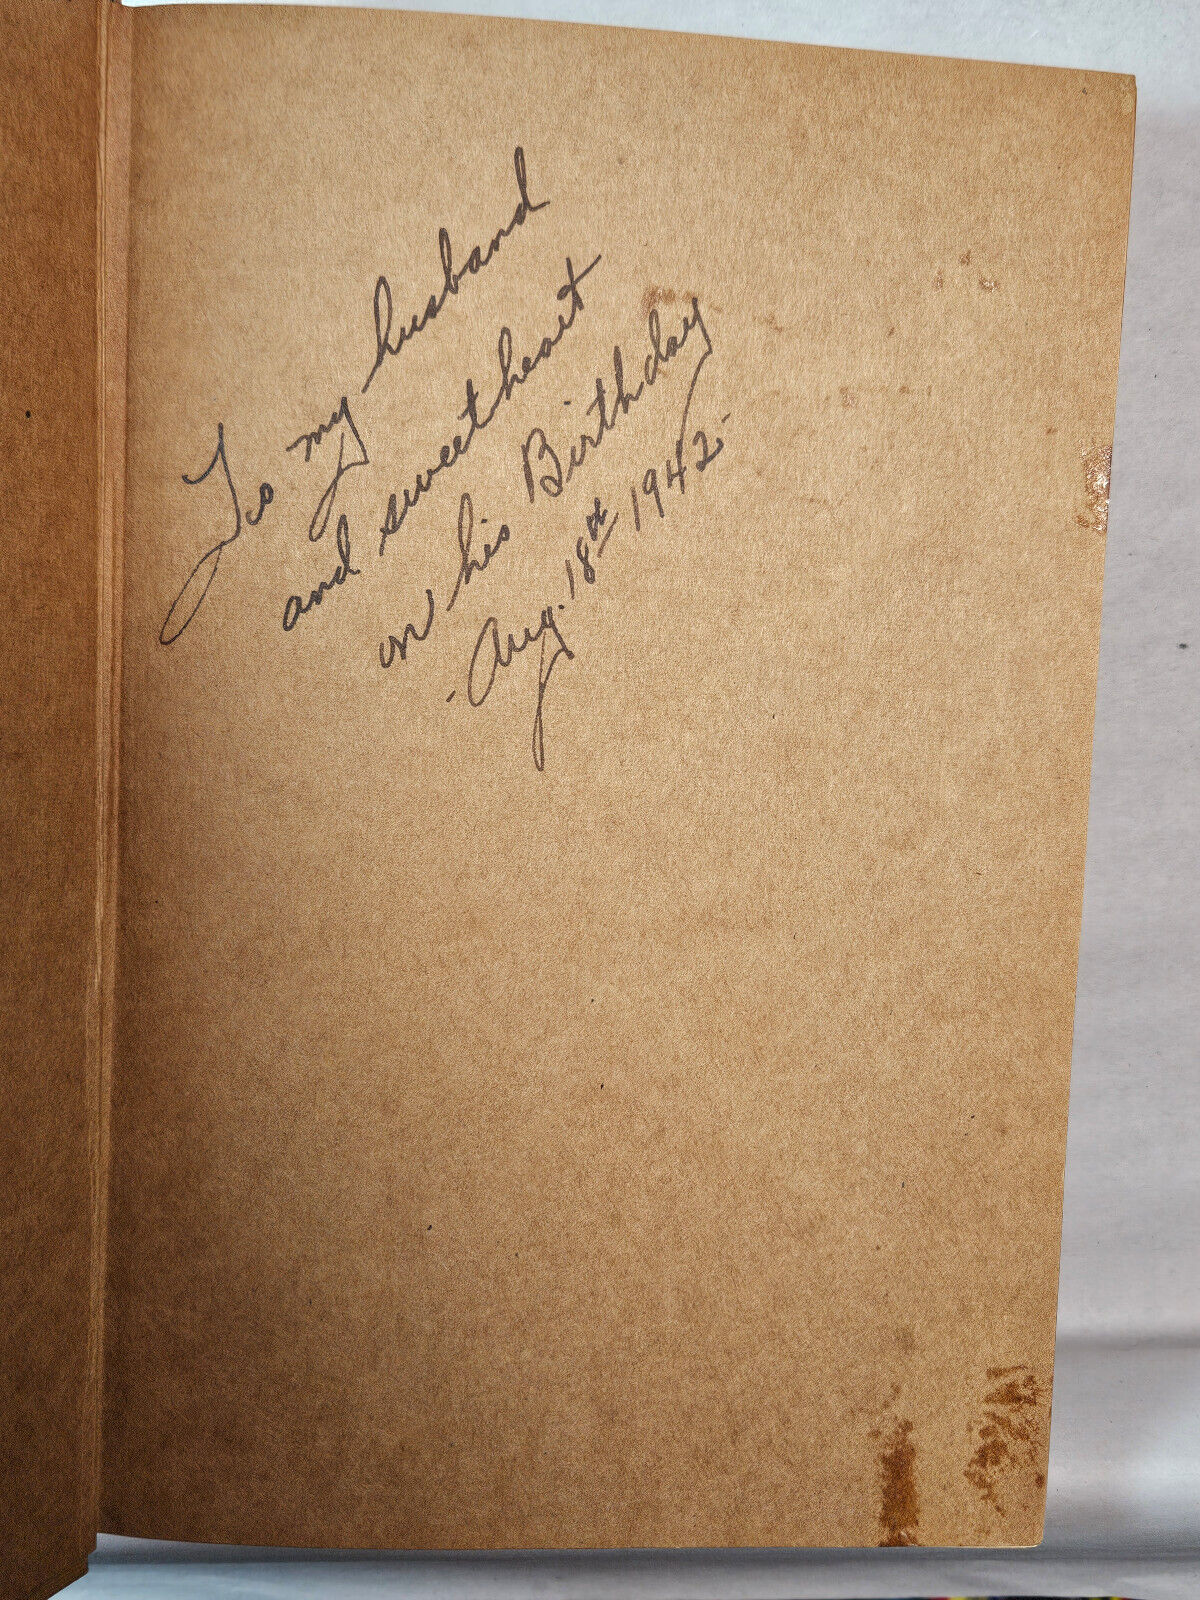 To my husband
and sweetheart
on his Birthday
- Aug. 18th 1942 -